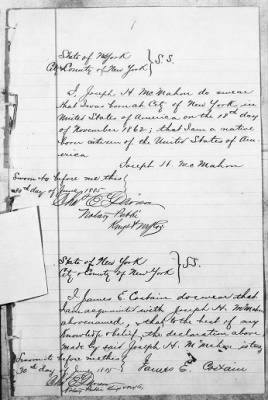 State of New York } S.S.
City & County of New York
I, Joseph H. McMahon do swear
that I was born at City of New York, in
United States of America on the 18th day
of November 1862; that I am a native
born citizen of the United States of Am
erica
Joseph H. McMahon
Sworn to before me this
30th day of June 1885
Notary Public
Kings & NY Co
State of New York } S.S.
City & County of New York
I James E. Costain do swear that
I am acquainted with Joseph H. McMahon
above named, & that to the best of my
knowledge & belief, the declaration above
made by said Joseph H. McMahon is true
Sworn to before me this
30th day June 1885
James E. Costain
Notary Public Kings & NY Co